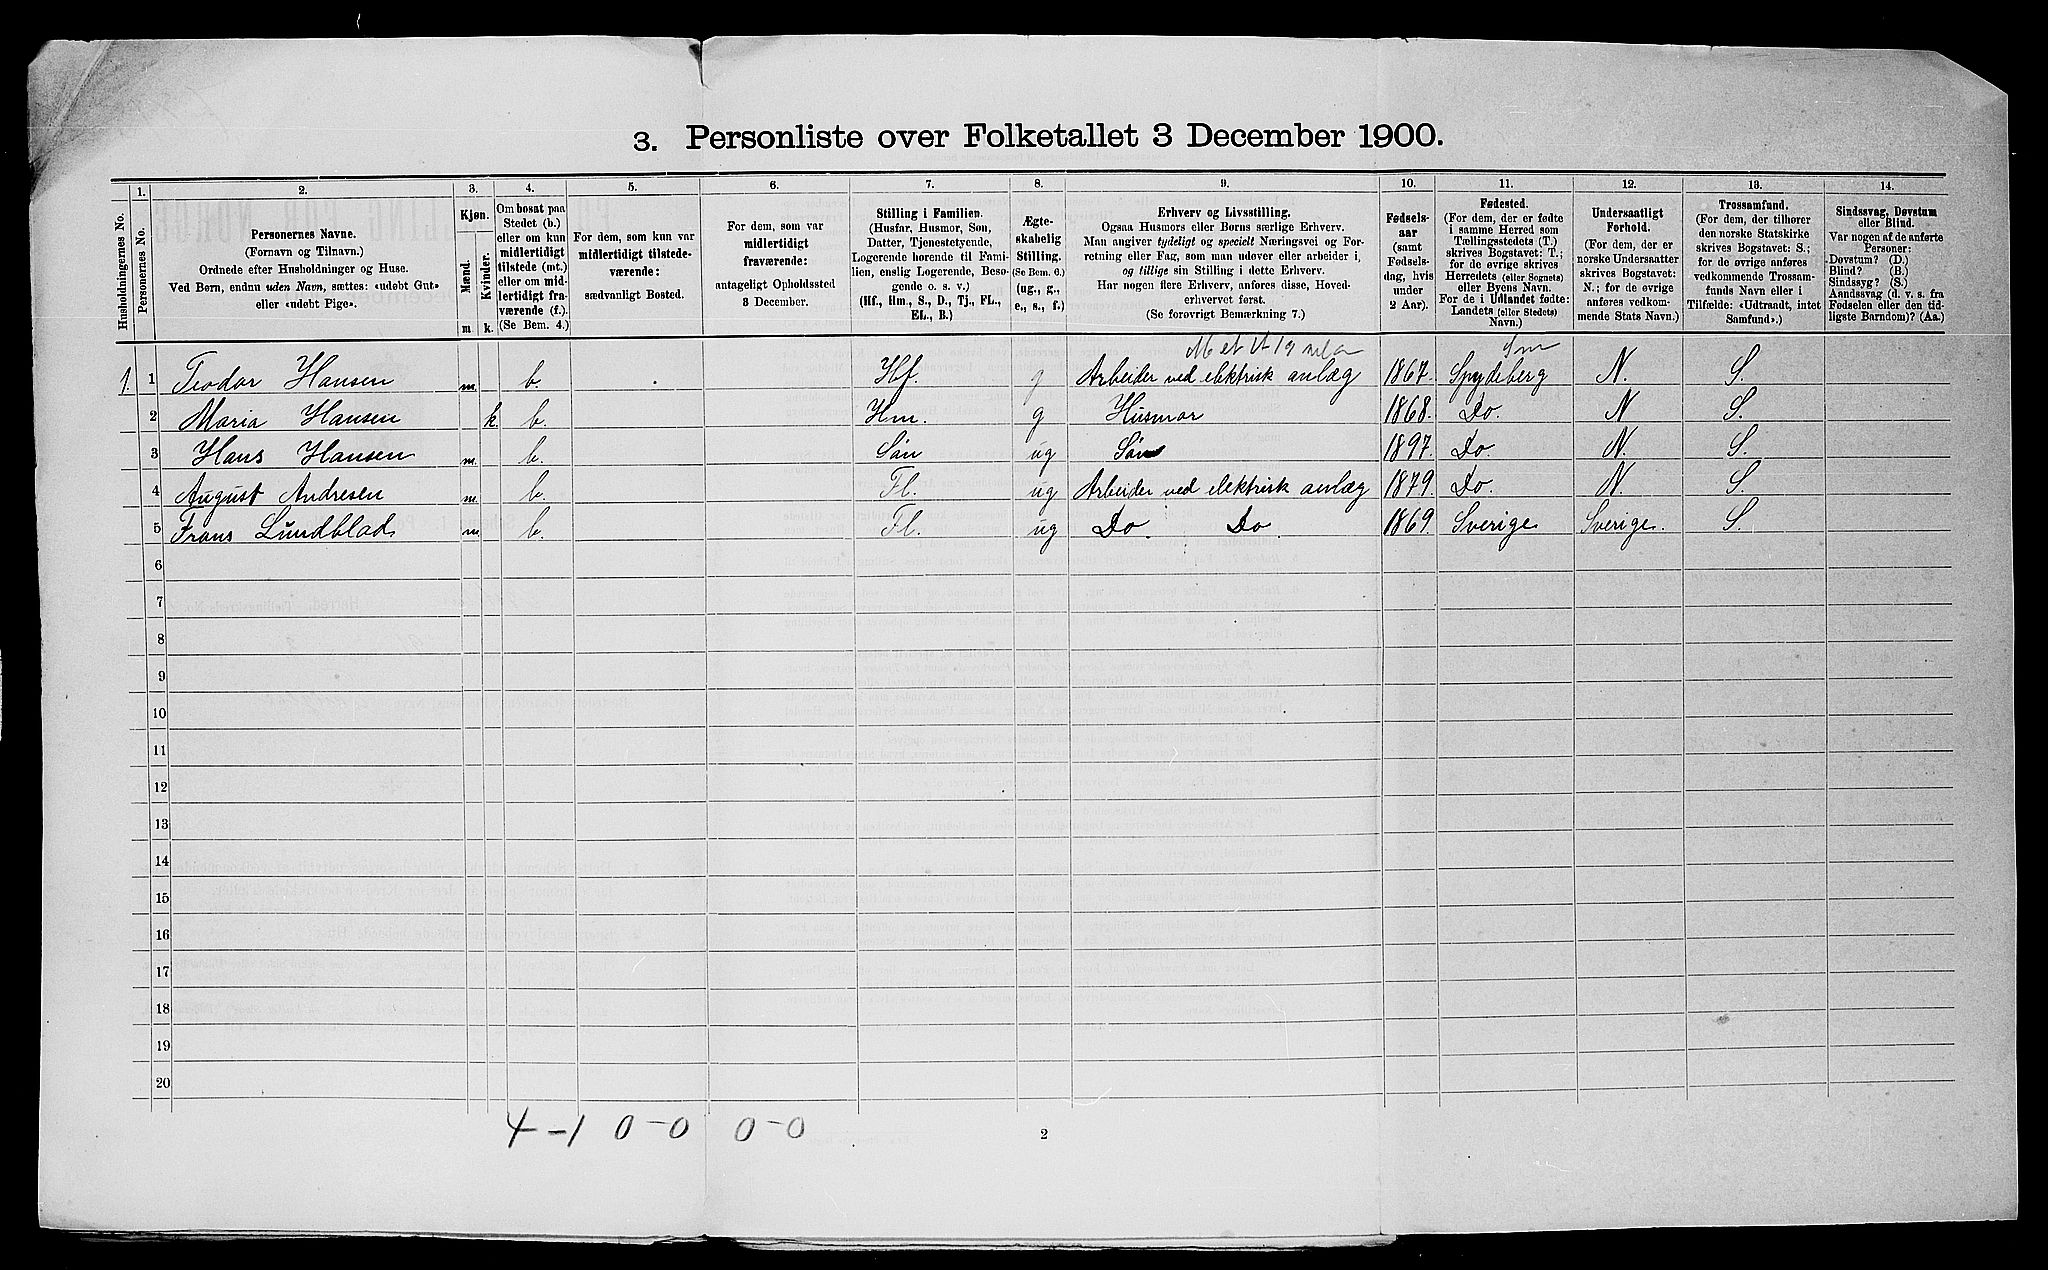 3. Personliste over Folketallet 3 December 1900.
1. 2. 3. 4. 5. 6. 7. 8. 9. 10. 11. 12. 13. 14.
Husholdningernes No.
Personernes No.
Personernes Navne.
(Fornavn og Tilnavn.)
Ordnede efter Husholdninger og Huse.
Ved Børn, endnu uden Navn, sættes: «udøbt Gut»
eller «udøbt Pige».
Kjøn.
Mænd.
Kvinder.
m. k.
Om bosat paa
Stedet (b.)
eller om kun
midlertidigt
tilstede (mt.)
eller om mid-
lertidigt fra-
værende (f.).
(Se Bem. 4.)
For dem, som kun var
midlertidigt tilstede-
værende:
sædvanligt Bosted.
For dem, som var
midlertidigt
fraværende:
antageligt Opholdssted
3 December.
Stilling i Familien.
(Husfar, Husmor, Søn,
Datter, Tjenestetyende,
Logerende hørende til Fami-
lien, enslig Logerende, Besø-
gende o. s. v.)
(Hf., Hm., S., D., Tj., FL.,
EL., B.)
Ægte-
skabelig
Stilling.
(Se Bem. 6.)
(ug., g.,
e., s., f.)
Erhverv og Livsstilling.
Ogsaa Husmors eller Børns særlige Erhverv.
Man angiver tydeligt og specielt Næringsvei og For-
retning eller Fag, som man udøver eller arbeider i,
og tillige sin Stilling i dette Erhverv.
Har nogen flere Erhverv, anføres disse, Hoved-
erhvervet først.
(Se forøvrigt Bemærkning 7.)
Fødsels-
aar
(samt
Fødsels-
dag, hvis
under
2 Aar).
Fødested.
(For dem, der er fødte
i samme Herred som
Tællingsstedets (T.)
skrives Bogstavet: T.;
for de øvrige skrives
Herredets (eller Sognets)
eller Byens Navn.
For de i Udlandet fødte:
Landets (eller Stedets)
Navn.)
Undersaatligt
Forhold.
(For dem, der er
norske Undersaatter
skrives Bogstavet:
N.; for de øvrige
anføres vedkom-
mende Stats Navn.)
Trossamfund.
(For dem, der tilhører
den norske Statskirke
skrives Bogstavet: S.;
for de øvrige anføres
vedkommende Trossam-
funds Navn eller i
Tilfælde: «Udtraadt, intet
Samfund».)
Sindssvag, Døvstum
eller Blind.
Var nogen af de anførte
Personer:
Døvstum? (D.)
Blind? (B.)
Sindssyg? (S.)
Aandssvag (d. v. s. fra
Fødselen eller den tid-
ligste Barndom)? (Aa.)
1. 1 Teodor Hansen m. b. Hf. g Arbeider ved elektrisk anlæg 1867. Spydeberg N. S.
2 Maria Hansen k. b. Hm. g Husmor 1868. Do. N S.
3 Hans Hansen m. b. Søn ug Søn 1897. Do. N. S.
4 August Andresen m. b. Fl. ug Arbeider ved elektrisk anlæg 1879. Do. N. S.
5 Frans Lundblad m. b. Fl. ug Do. Do 1869. Sverige Sverige. S.
6
7
8
9
10
11
12
13
14
15
16
17
18
19
20
4-1 0-0 0-0
2